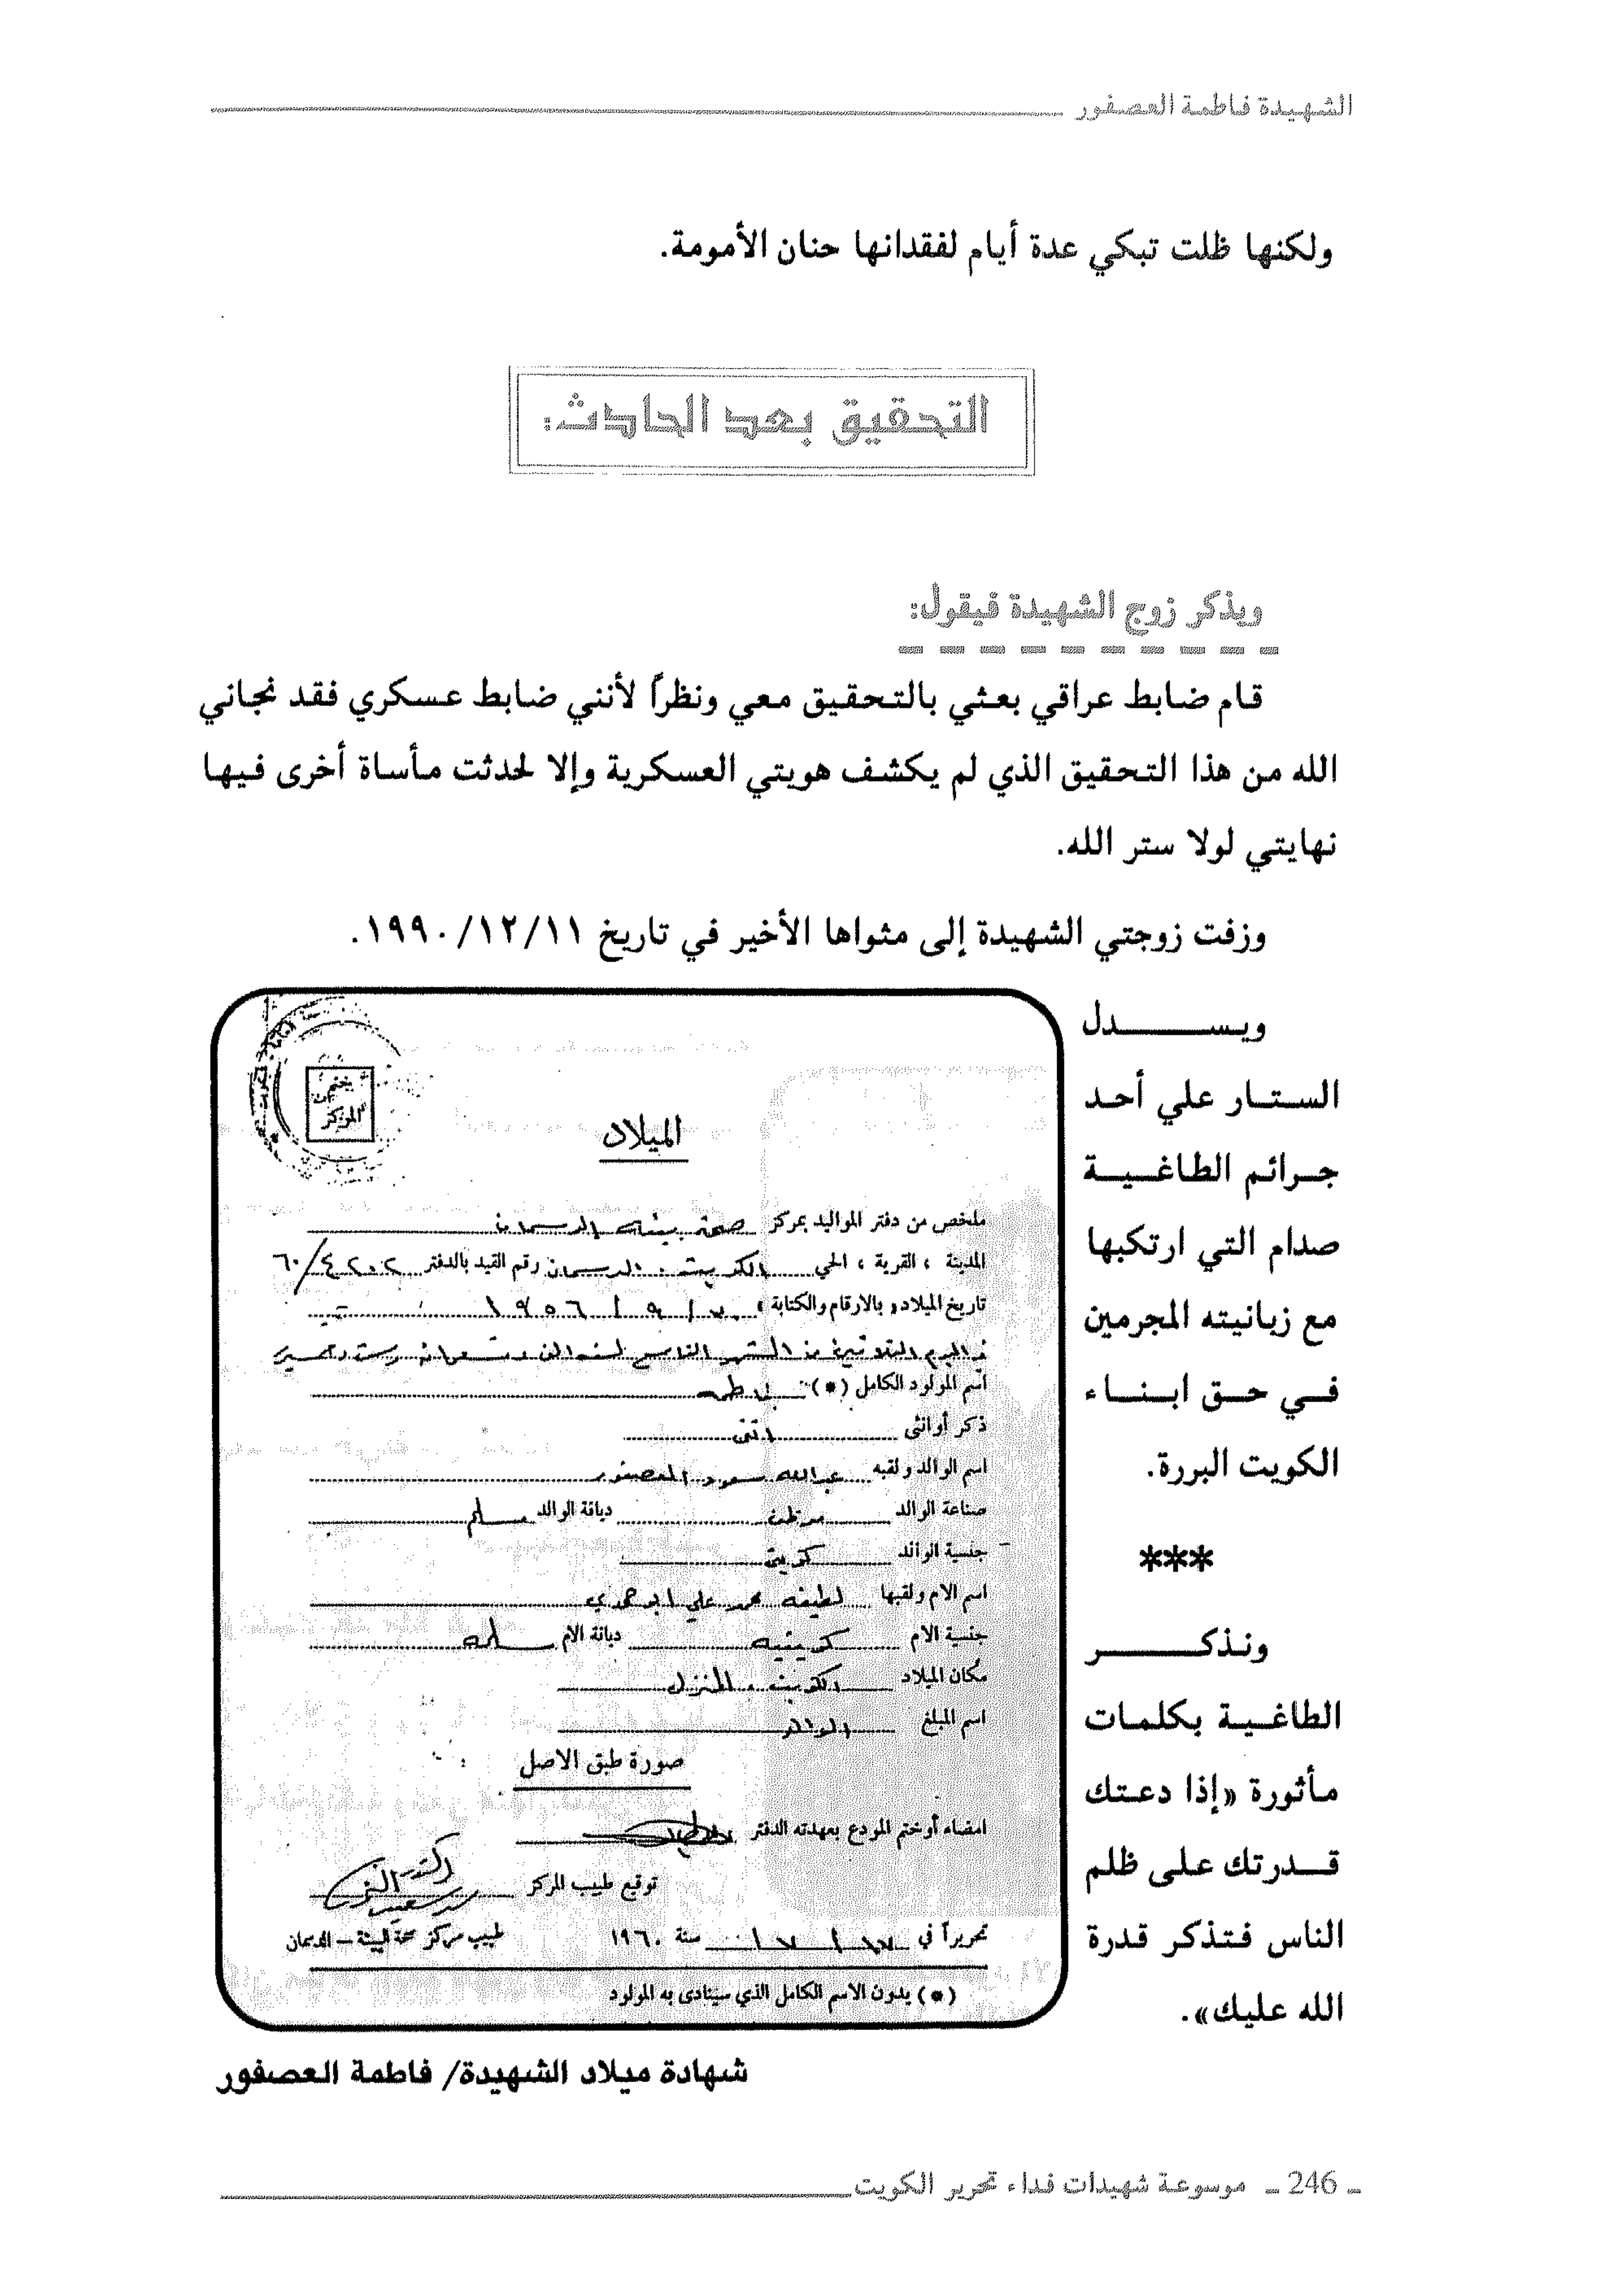 الشهيدة فاطمة العصفور
ولكنها ظلت تبكي عدة أيام لفقدانها حنان الأمومة.
التحقيق بعد الحادث:
ويذكر زوج الشهيدة فيقول:
قام ضابط عراقي بعثي بالتحقيق معي ونظراً لأنني ضابط عسكري فقد نجاني
الله من هذا التحقيق الذي لم يكشف هويتي العسكرية وإلا لحدثت مأساة أخرى فيها
نهايتي لولا ستر الله.
وزفت زوجتي الشهيدة إلى مثواها الأخير في تاريخ ١٩٩٠/١٢/١١.
ويســـــدل
الستار علي أحد
جرائم الطاغية
صدام التي ارتكبها
مع زبانيته المجرمين
في حق ابناء
الكويت البررة.
***
ونذكـــــر
الطاغية بكلمات
مأثورة «إذا دعتك
قدرتك على ظلم
الناس فتذكر قدرة
الله عليك».
الميلاد
ملخص من دفتر المواليد بمركز صحة
المدينة ، القرية ، الحي الكويت . رقم القيد بالدفتر ٤٢٠٢/٦٠
تاريخ الميلاد بالارقام والكتابة
اسم المولود الكامل (*) فاطمة
ذكر أو انثى انثى
اسم الوالد ولقبه عبدالله سعود العصفور
صناعة الوالد موظف ديانة الوالد مسلم
جنسية الوالد كويتي
اسم الام ولقبها لطيفه محمد علي
جنسية الام كويتيه ديانة الام مسلمه
مكان الميلاد الكويت . المنزل
اسم المبلغ الوالد
صورة طبق الاصل
امضاء أو ختم المودع بعهدته الدفتر
توقيع طبيب المركز
تحريراً في سنة ١٩٦٠
طبيب مركز صحة البيئة – الدسمان
(*) يدون الاسم الكامل الذي سينادى به المولود
شهادة ميلاد الشهيدة/ فاطمة العصفور
ـ 246 ـ موسوعة شهيدات فداء تحرير الكويت